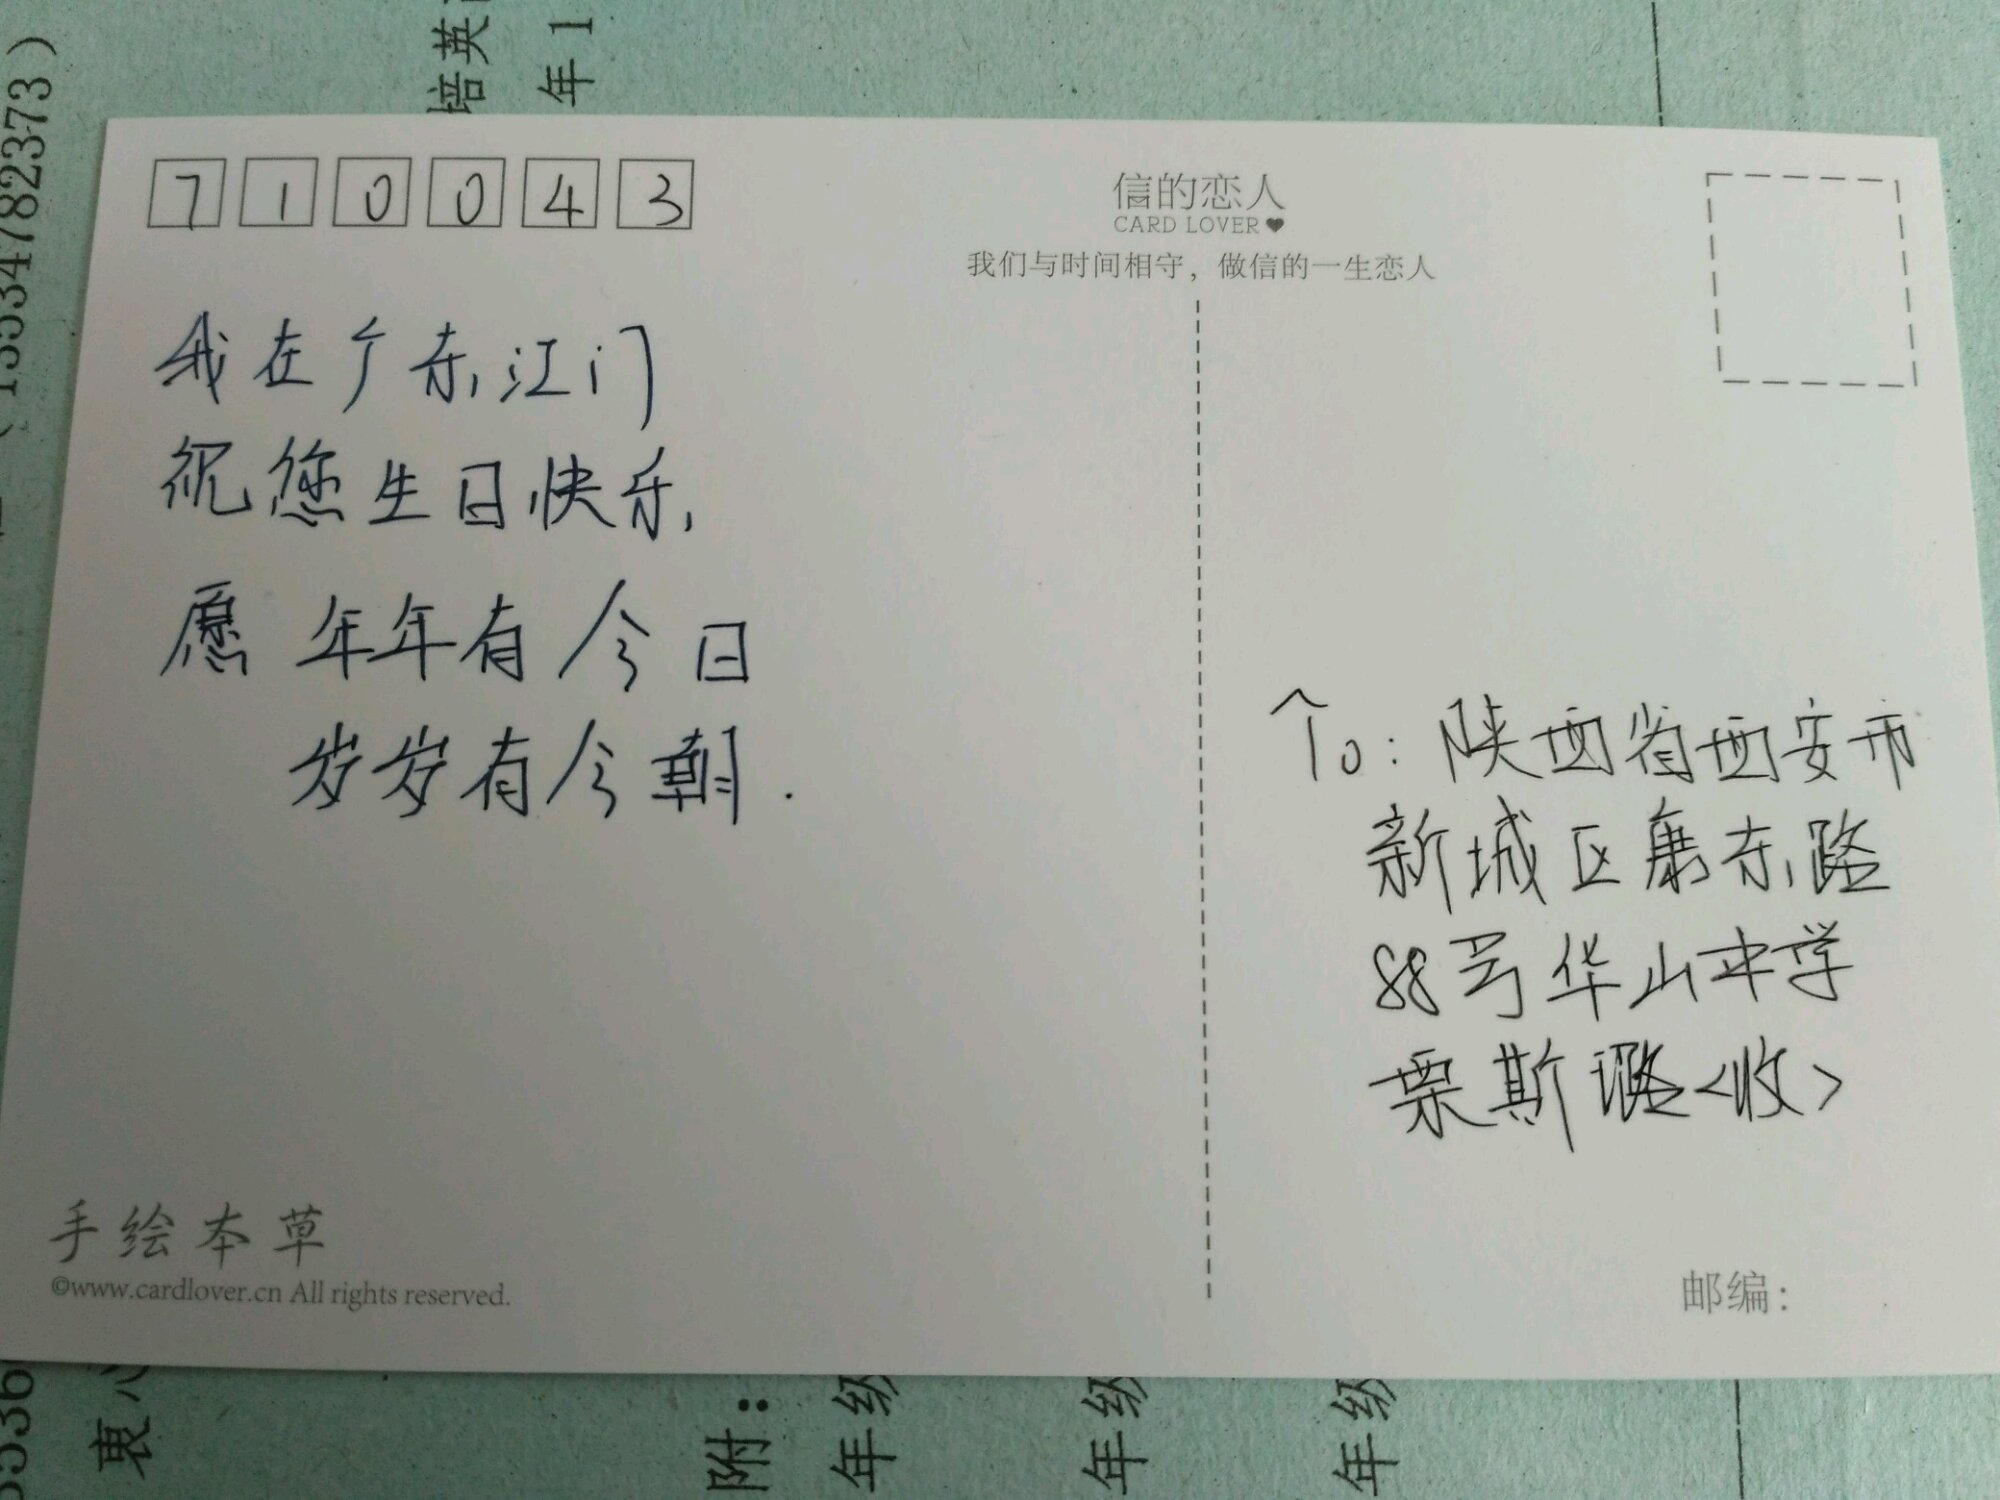 710043
信的恋人
CARD LOVER
我们与时间相守，做信的一生恋人
我在广东江门
祝您生日快乐，
愿 年年有今日
岁岁有今朝.
To: 陕西省西安市
新城区康东路
88号华山中学
栗斯璐<收>
手绘本草
©www.cardlover.cn All rights reserved.
邮编：
培英
年1
13534782373）
衷心
附：
年级
年级
年级